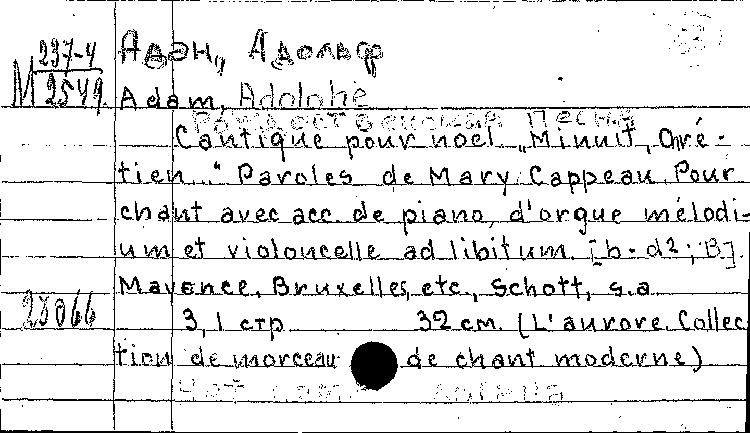 М 237-4
2549.
Адэн, Адольф
Adam, Adolphe
Рождественская песня
Cantique pour noel „Minuit, Chré-
tien..." Paroles de Mary Cappeau. Pour
chant avec acc. de piano, d'orgue mélodi-
um et violoncelle ad libitum. [b-d2; B].
Mayence, Bruxelles, etc., Schott, s.a.
23066
3, 1 стр. 32 cm. (L'aurore. Collec
tion de morceau de chant moderne)